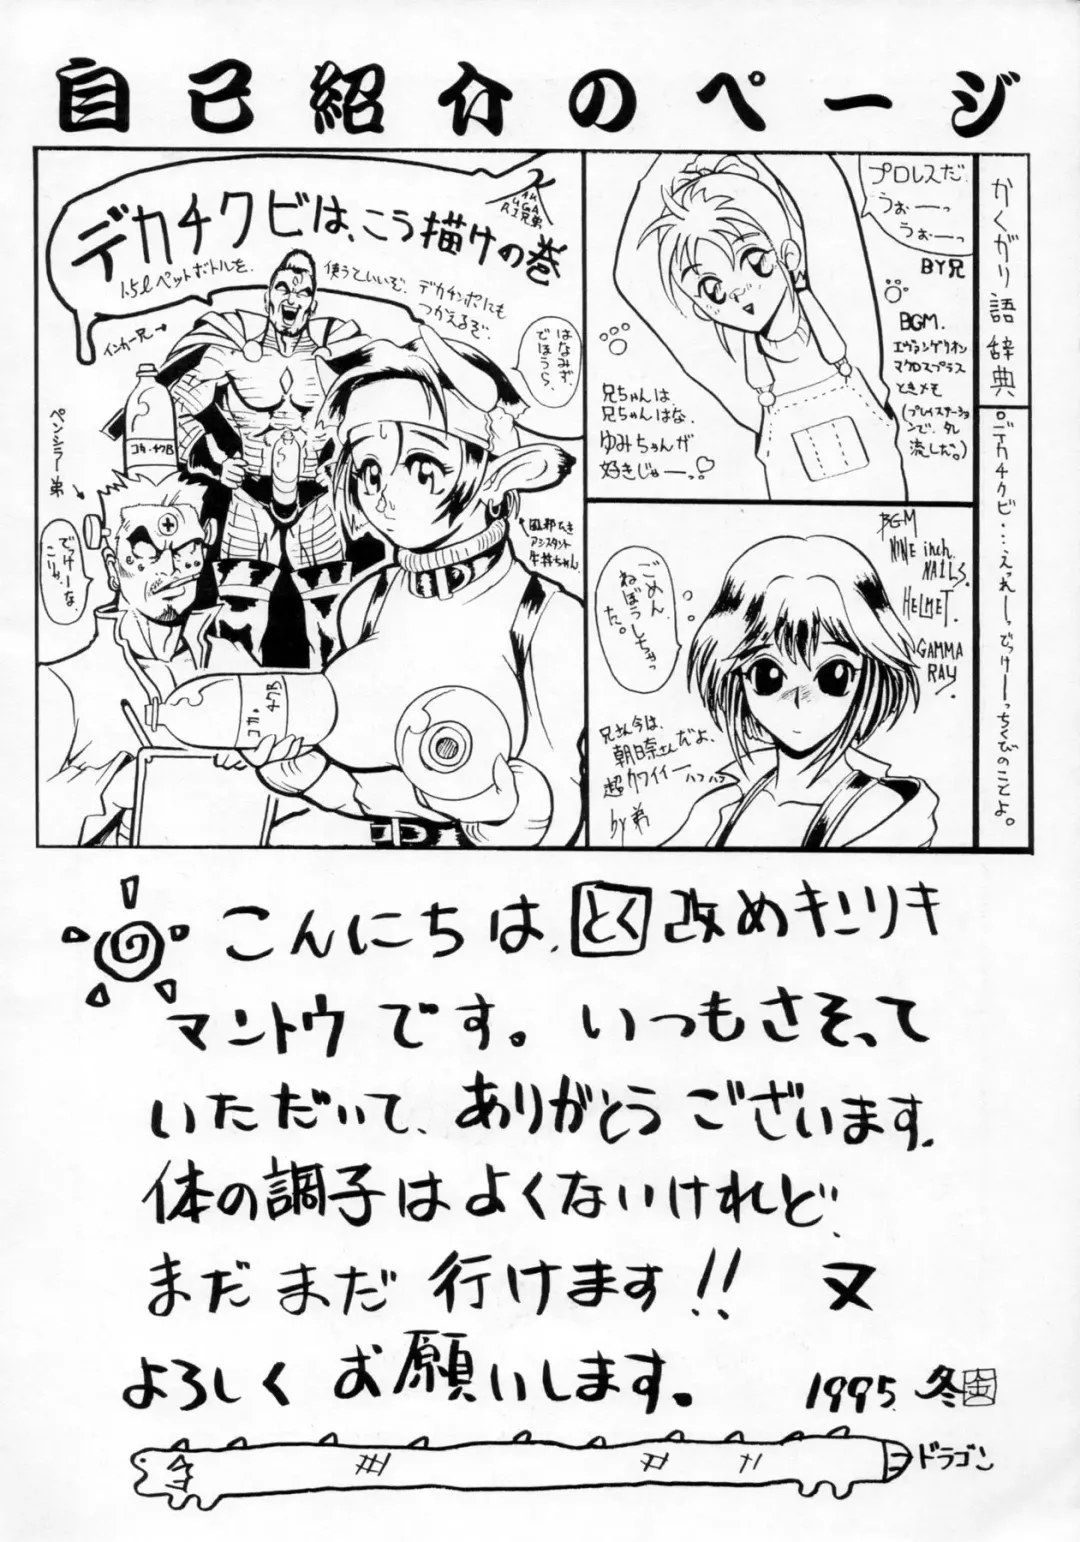 自己紹介のページ
デカチクビは、こう描けの巻
1.5ℓペットボトルを、
使うといいぞ、デカチンポにも
つかえるぞ、
インカー兄→
ペンシラー弟
コカ・チクB
でっけーな、
こりゃ。
はなみず、
でほうら、
風邪ひき
アシスタント
牛丼ちゃん。
コカ・
チクB
プロレスだ
うぉーーっ
うぉーーっ
BY兄
BGM.
エヴァンゲリオン
マクロスプラス
ときメモ
(プレイステーション
ンで、タレ
流した。)
兄ちゃんは、
兄ちゃんはな、
ゆみちゃんが
好きじゃーーっ!♡
BGM
NINE inch.
NAILS.
HELMET.
GAMMA
RAY.
ごめん、
ねぼうしちゃっ
た。
兄さん今は、
朝日奈さんだよ、
超カワイイー ハフハフ
by弟
かくがり語辞典
。デカチクビ…えれーっでっけーーっちくびのことよ。
こんにちは、とく改めキンリキ
マントウです。いつもさそって
いただいて、ありがとうございます。
体の調子はよくないけれど、
まだまだ行けます!! ヌ
よろしくお願いします。
1995.冬
ドラゴン